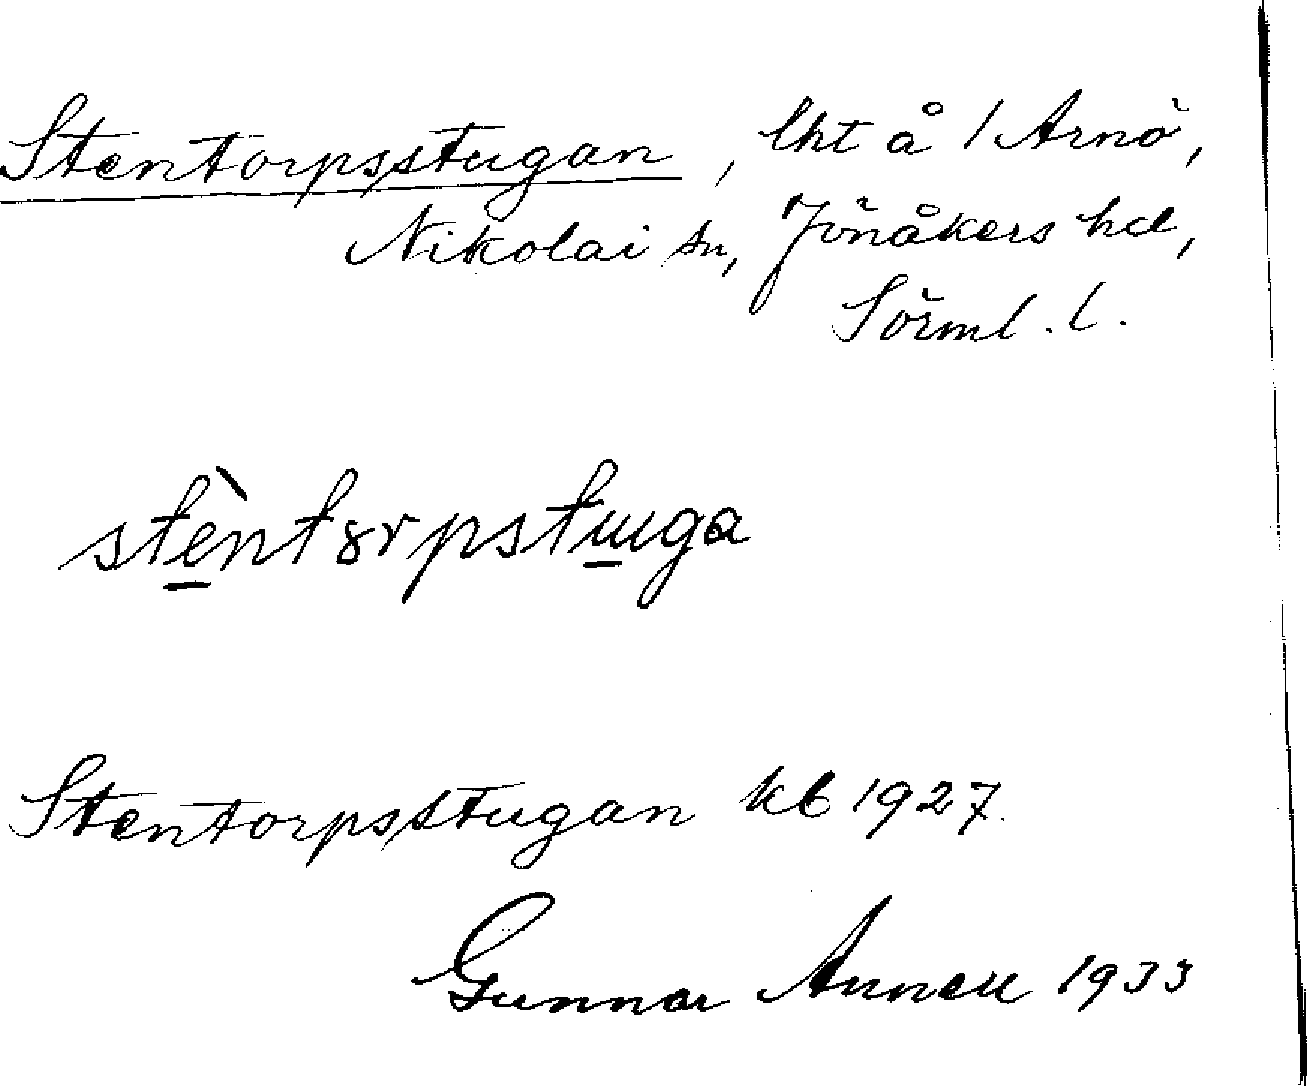 Stentorpsstugan, lht å 1 Arnö,
Nikolai sn, Jönåkers hd,
Sörml. l.
stèntȣrpstɯga
Stentorpsstugan kb 1927.
Gunnar Annell 1933